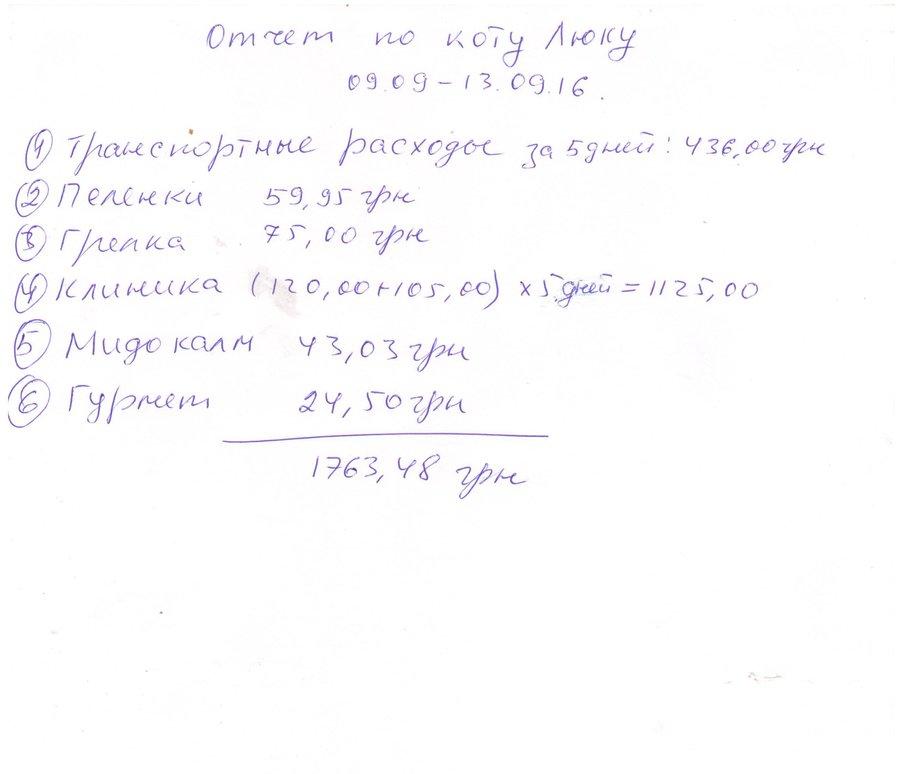 Отчет по коту Люку
09.09 – 13.09.16.
1 Транспортные расходы за 5 дней: 436,00 грн
2 Пеленки 59,95 грн
3 Грелка 75,00 грн
4 Клиника (120,00+105,00) х 5 дней = 1125,00
5 Мидокалм 43,03 грн
6 Гурмет 24,50 грн
1763,48 грн